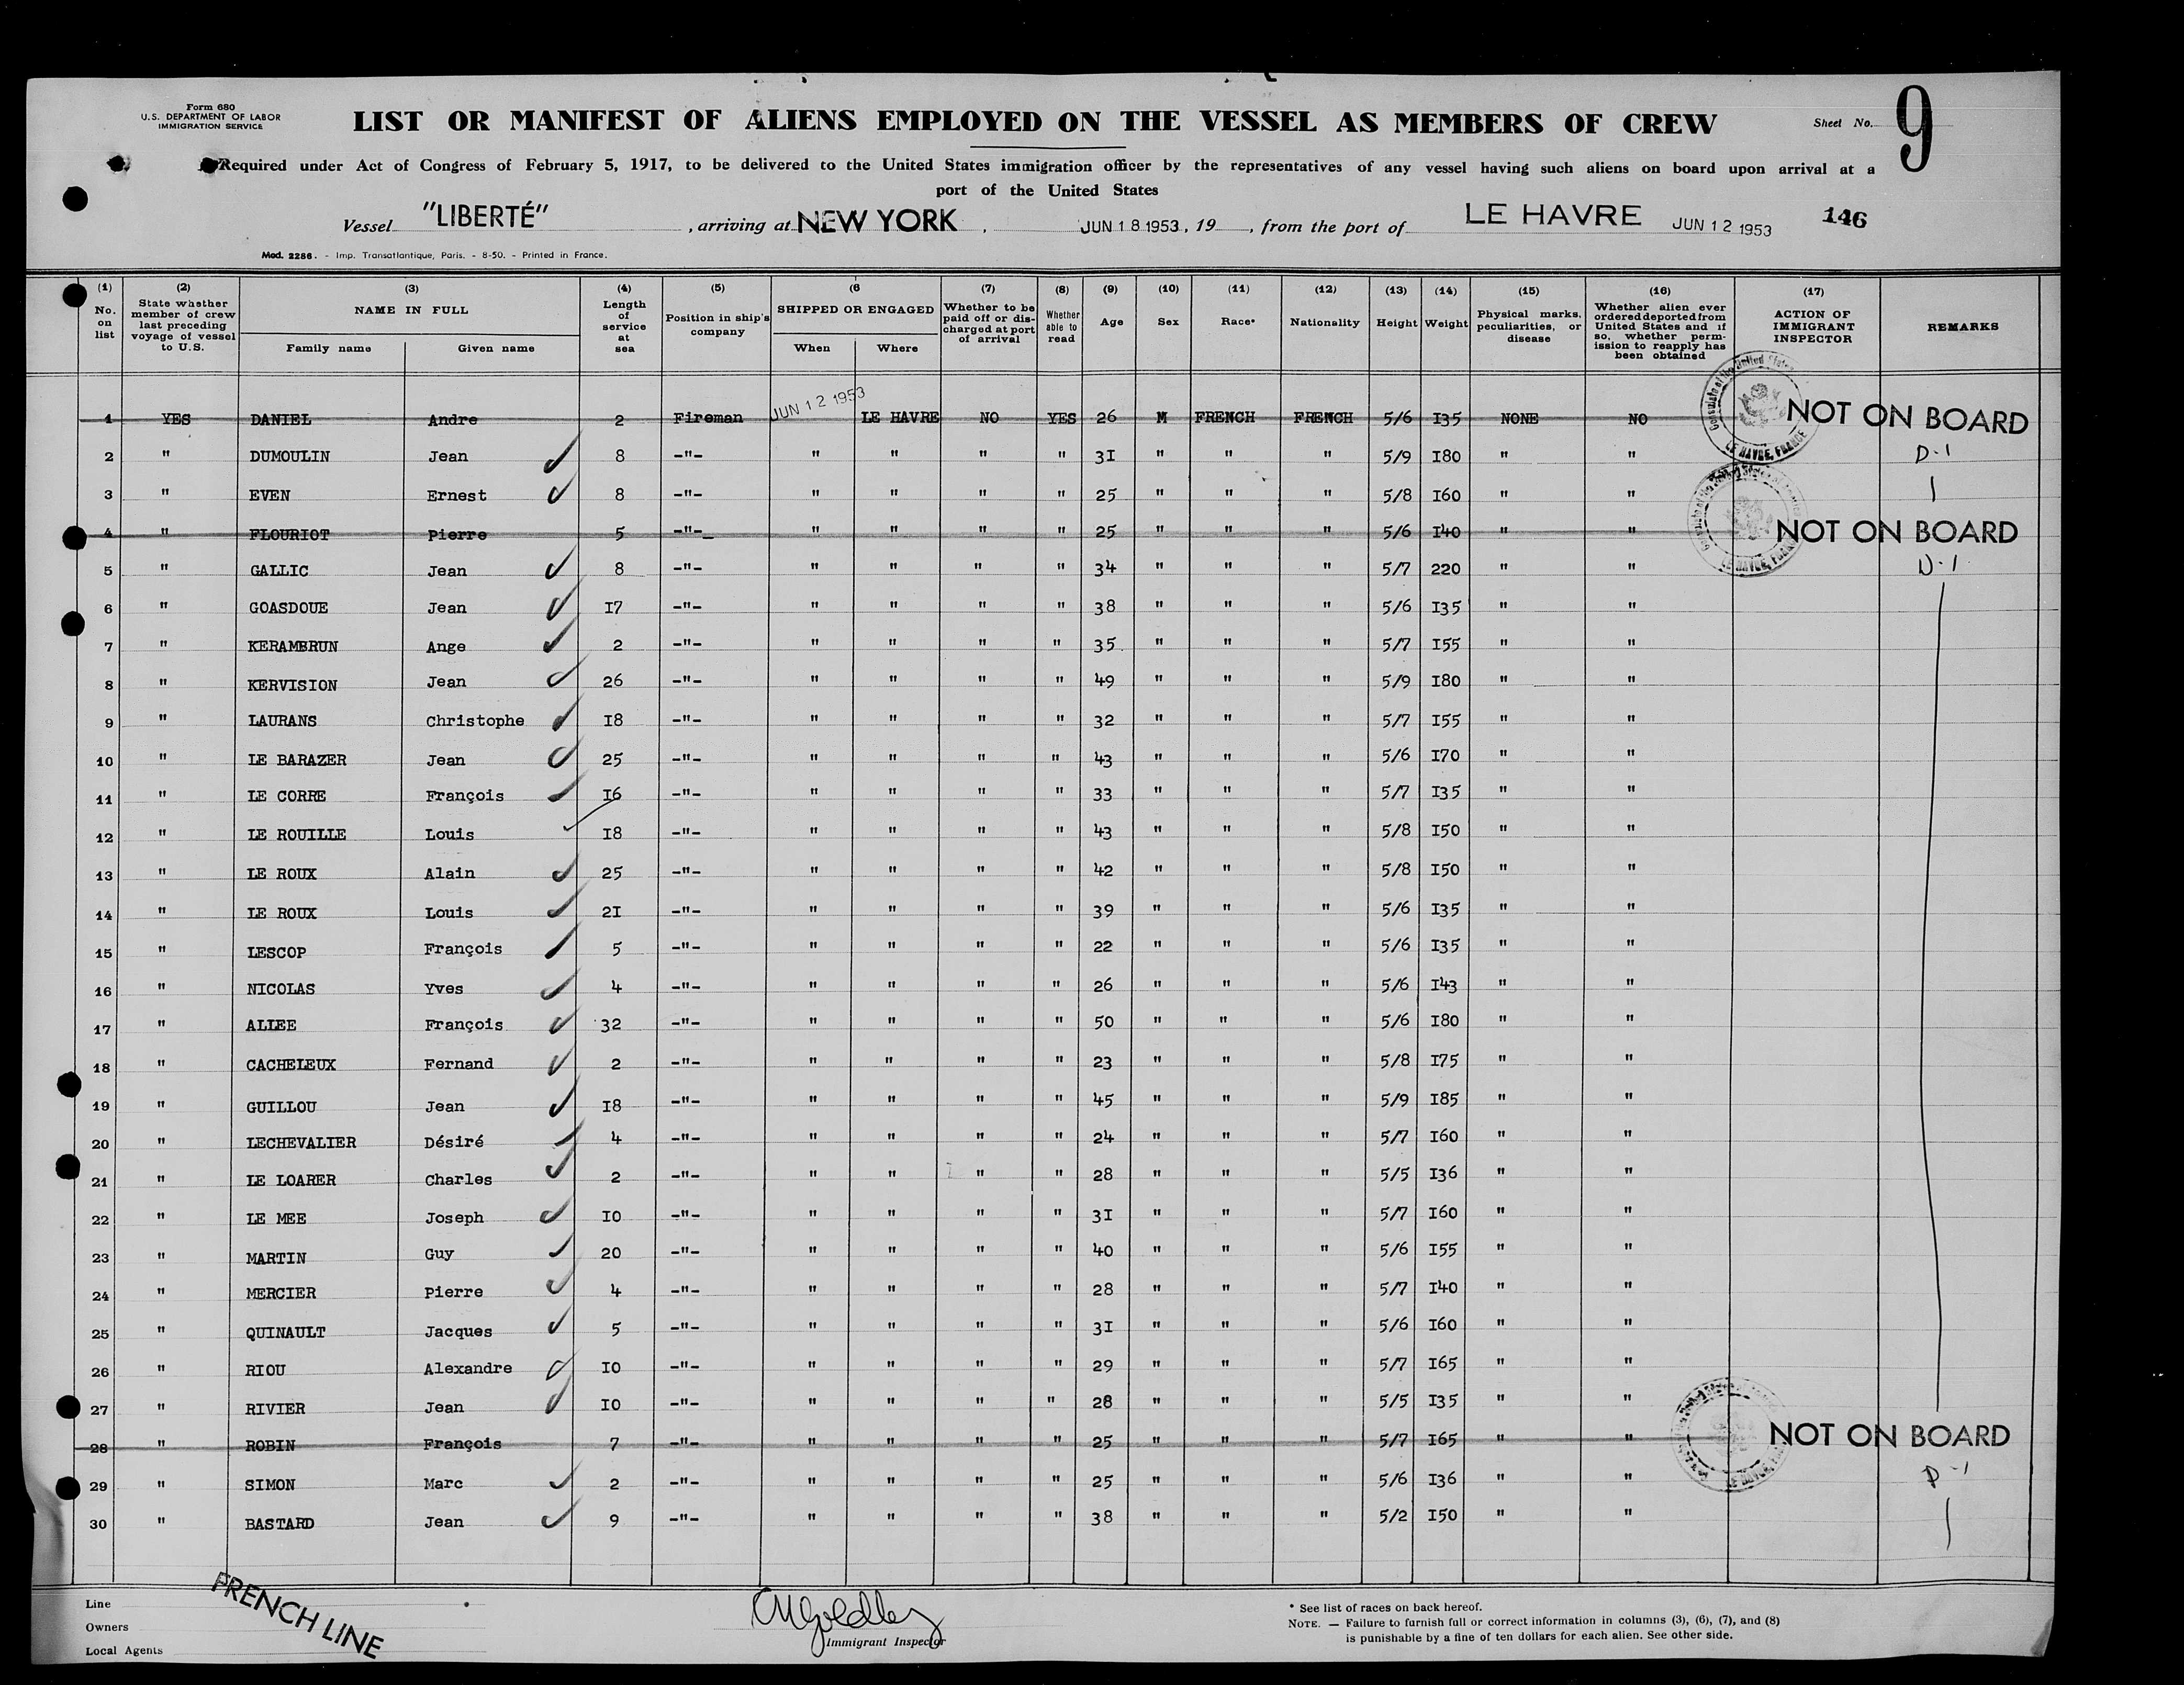 Form 680
U.S. DEPARTMENT OF LABOR
IMMIGRATION SERVICE
LIST OR MANIFEST OF ALIENS EMPLOYED ON THE VESSEL AS MEMBERS OF CREW
Sheet No. 9
Required under Act of Congress of February 5, 1917, to be delivered to the United States immigration officer by the representatives of any vessel having such aliens on board upon arrival at a
port of the United States
Vessel "LIBERTÉ", arriving at NEW YORK, JUN 18 1953, 19 , from the port of LE HAVRE JUN 12 1953 146
Mod. 2286. - Imp. Transatlantique, Paris. - 8-50. - Printed in France.
(1) No. on list (2) State whether member of crew last preceding voyage of vessel to U.S. (3) NAME IN FULL Family name Given name (4) Length of service at sea (5) Position in ship's company (6 SHIPPED OR ENGAGED When Where (7) Whether to be paid off or discharged at port of arrival (8) Whether able to read (9) Age (10) Sex (11) Race* (12) Nationality (13) Height (14) Weight (15) Physical marks, peculiarities, or disease (16) Whether alien ever ordered deported from United States and if so, whether permission to reapply has been obtained (17) ACTION OF IMMIGRANT INSPECTOR REMARKS
1 YES DANIEL Andre 2 Fireman JUN 12 1953 LE HAVRE NO YES 26 M FRENCH FRENCH 5/6 I35 NONE NO NOT ON BOARD
LE HAVRE, FRANCE
2 " DUMOULIN Jean 8 -"- " " " " 3I " " " 5/9 I80 " " D-1
3 " EVEN Ernest 8 -"- " " " " 25 " " " 5/8 I60 " "
4 " FLOURIOT Pierre 5 -"- " " " " 25 " " " 5/6 I40 " " NOT ON BOARD
5 " GALLIC Jean 8 -"- " " " " 34 " " " 5/7 220 " " D-1
6 " GOASDOUE Jean I7 -"- " " " " 38 " " " 5/6 I35 " "
7 " KERAMBRUN Ange 2 -"- " " " " 35 " " " 5/7 I55 " "
8 " KERVISION Jean 26 -"- " " " " 49 " " " 5/9 I80 " "
9 " LAURANS Christophe I8 -"- " " " " 32 " " " 5/7 I55 " "
10 " LE BARAZER Jean 25 -"- " " " " 43 " " " 5/6 I70 " "
11 " LE CORRE François I6 -"- " " " " 33 " " " 5/7 I35 " "
12 " LE ROUILLE Louis I8 -"- " " " " 43 " " " 5/8 I50 " "
13 " LE ROUX Alain 25 -"- " " " " 42 " " " 5/8 I50 " "
14 " LE ROUX Louis 2I -"- " " " " 39 " " " 5/6 I35 " "
15 " LESCOP François 5 -"- " " " " 22 " " " 5/6 I35 " "
16 " NICOLAS Yves 4 -"- " " " " 26 " " " 5/6 I43 " "
17 " ALLEE François 32 -"- " " " " 50 " " " 5/6 I80 " "
18 " CACHELEUX Fernand 2 -"- " " " " 23 " " " 5/8 I75 " "
19 " GUILLOU Jean I8 -"- " " " " 45 " " " 5/9 I85 " "
20 " LECHEVALIER Désiré 4 -"- " " " " 24 " " " 5/7 I60 " "
21 " LE LOARER Charles 2 -"- " " " " 28 " " " 5/5 I36 " "
22 " LE MEE Joseph I0 -"- " " " " 3I " " " 5/7 I60 " "
23 " MARTIN Guy 20 -"- " " " " 40 " " " 5/6 I55 " "
24 " MERCIER Pierre 4 -"- " " " " 28 " " " 5/7 I40 " "
25 " QUINAULT Jacques 5 -"- " " " " 3I " " " 5/6 I60 " "
26 " RIOU Alexandre I0 -"- " " " " 29 " " " 5/7 I65 " "
27 " RIVIER Jean I0 -"- " " " " 28 " " " 5/5 I35 " "
28 " ROBIN François 7 -"- " " " " 25 " " " 5/7 I65 " " NOT ON BOARD
29 " SIMON Marc 2 -"- " " " " 25 " " " 5/6 I36 " " D-1
30 " BASTARD Jean 9 -"- " " " " 38 " " " 5/2 I50 " "
Line FRENCH LINE
Owners
Local Agents
Immigrant Inspector
* See list of races on back hereof.
NOTE. — Failure to furnish full or correct information in columns (3), (6), (7), and (8)
is punishable by a fine of ten dollars for each alien. See other side.